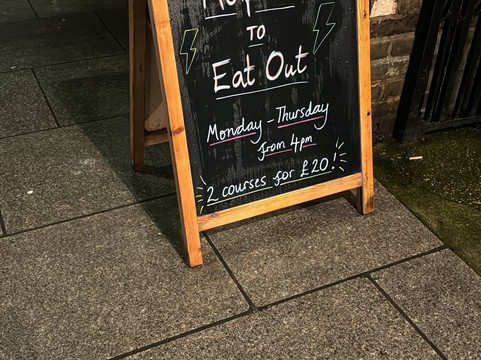 TO
Eat Out
Monday - Thursday
from 4pm
2 courses for £20!